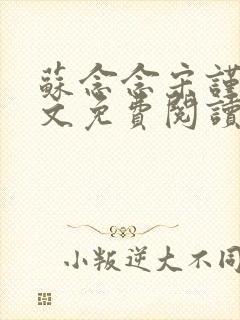 蘇念念宋謹
文免費閱讀
小叛逆大不同